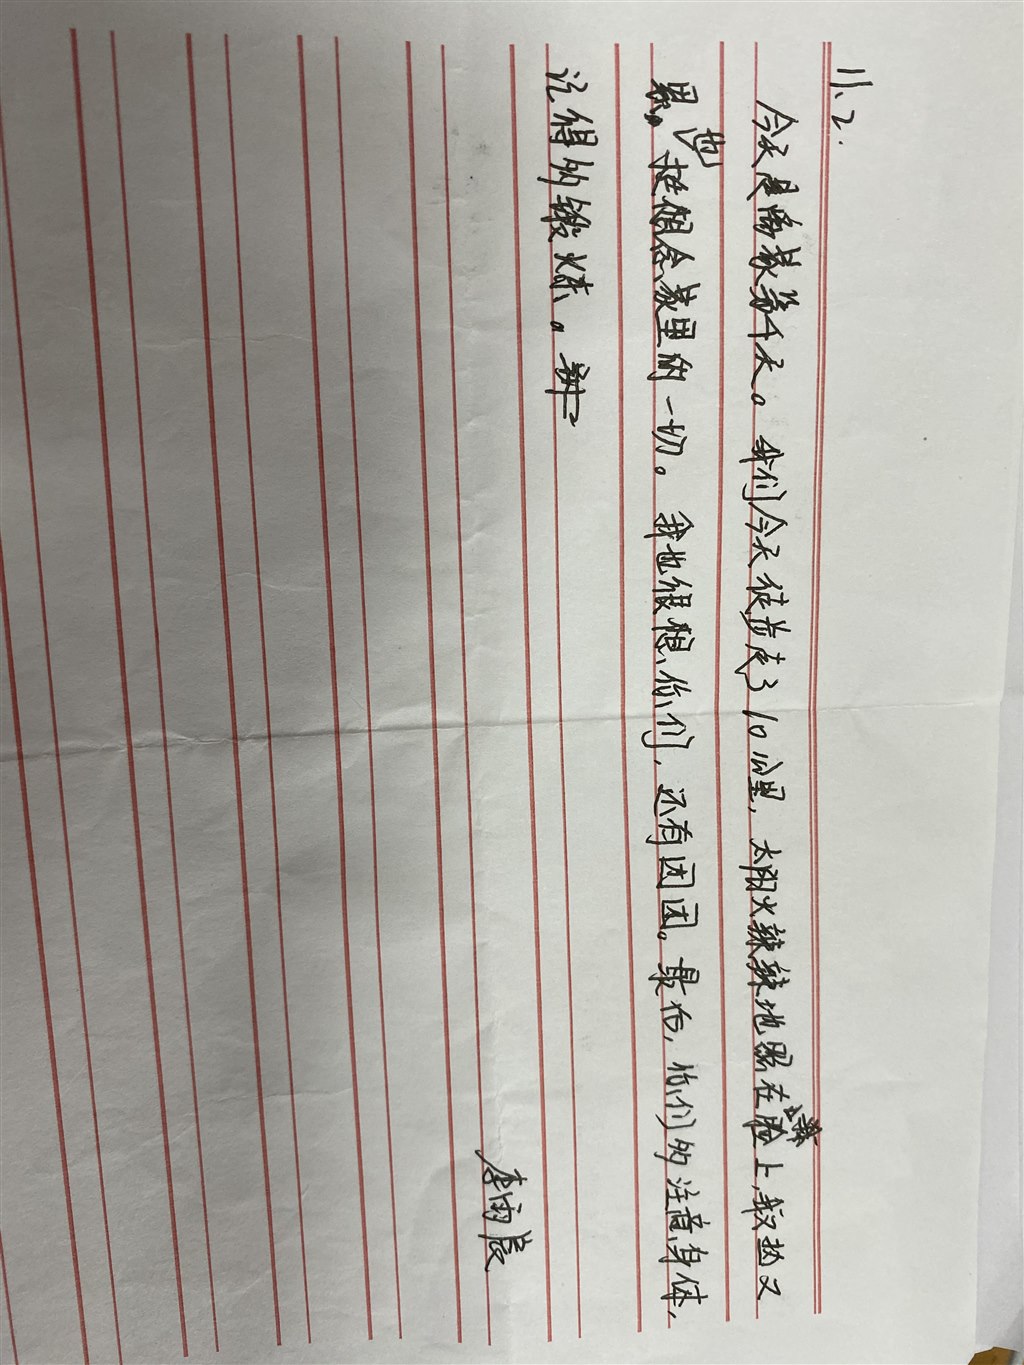 11、2.
今天是离家第4天。我们今天徒步走了10公里，太阳火辣辣地照在脸上，我热又
累。也挺念家里的一切。我也很想你们，还有团团。最后，你们多注意身体，
记得多锻炼。
李雨晨